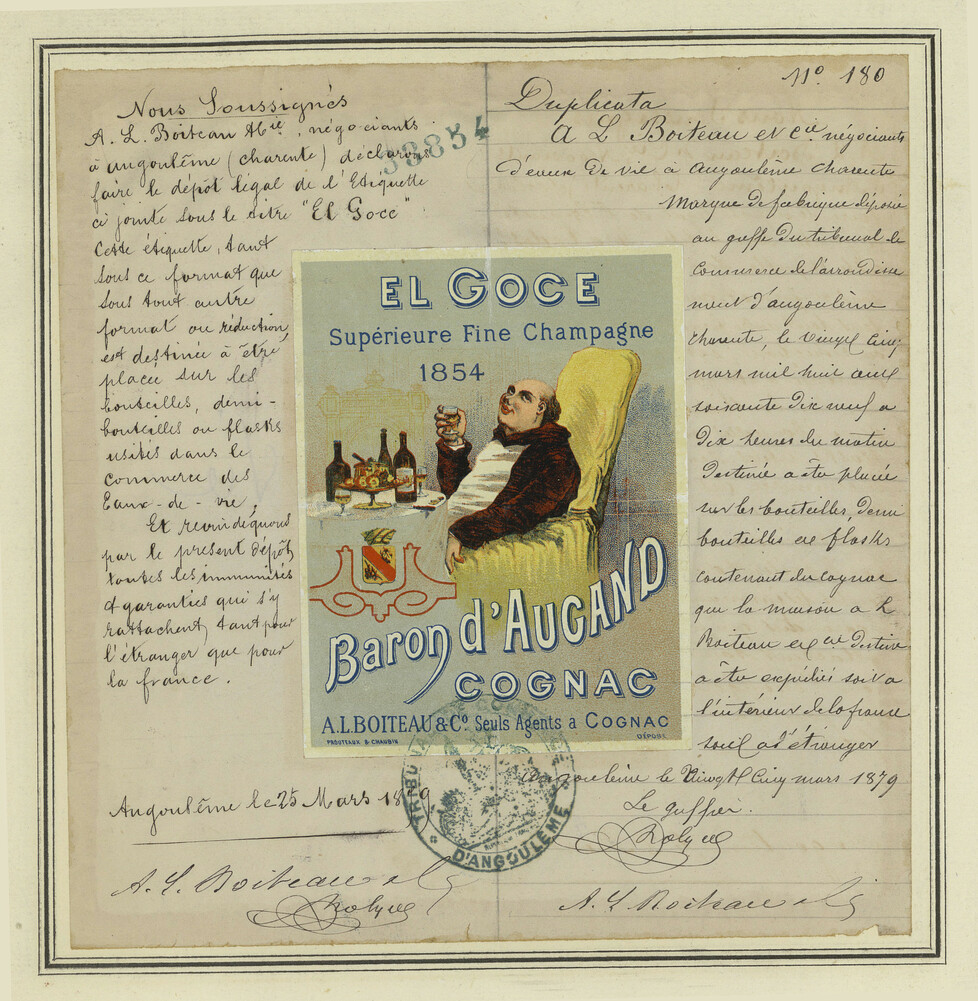 Nous Soussignés
A. L. Boiteau & Cie, négociants
à angoulême (charente) déclarons
faire le dépôt légal de l'Etiquette
ci jointe sous le titre "El Goce"
Cette étiquette, tant
sous ce format que
sous tout autre
format ou réduction,
est destinée à être
placée sur les
bouteilles, demi-
bouteilles ou flasks
usités dans le
commerce des
Eaux-de-vie,
Et revendiquons
par le present dépôt,
toutes les immunités
& garanties qui s'y
rattachent, tant pour
l'étranger que pour
la france.
Angoulême le 25 Mars 1879
A. L. Boiteau & Cie
38854
EL GOCE
Supérieure Fine Champagne
1854
Baron d'AUGAND
COGNAC
A.L.BOITEAU & Co. Seuls Agents a COGNAC
PROUTEAUX & CHAUBIN
DÉPOSÉ
TRIBUNAL DE COMMERCE
D'ANGOULÊME
No 180
Duplicata
A L Boiteau et Cie négociants
d'eaux de vie à angoulême charente
Marque de fabrique déposée
au greffe du tribunal de
Commerce de l'arrondisse
ment d'angoulême
charente, le vingt cinq
mars mil huit cent
soixante dix neuf a
dix heures du matin
destiné a être placée
sur les bouteilles, demi
bouteilles et flasks
contenant du cognac
que la maison a L
Boiteau et cie destine
a être expédiés soit a
l'intérieur de la france
soit a l'étranger
angoulême le vingt Cinq mars 1879
Le greffier.
A. L Boiteau & Cie